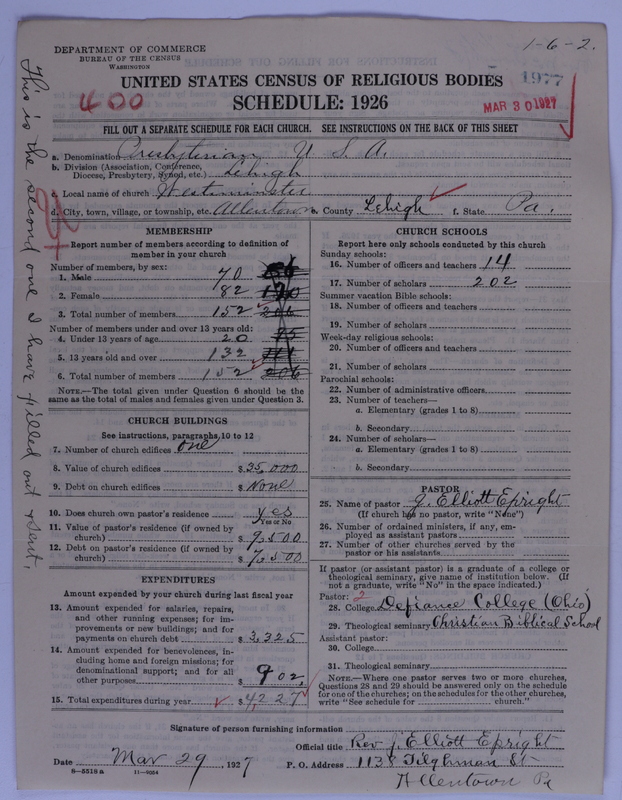 DEPARTMENT OF COMMERCE
BUREAU OF THE CENSUS
WASHINGTON
1-6-2.
UNITED STATES CENSUS OF RELIGIOUS BODIES
1977
400
SCHEDULE: 1926
MAR 30 1927
FILL OUT A SEPARATE SCHEDULE FOR EACH CHURCH. SEE INSTRUCTIONS ON THE BACK OF THIS SHEET
a. Denomination Presbyterian U. S. A.
b. Division (Association, Conference, Diocese, Presbytery, Synod, etc.) Lehigh
c. Local name of church Westminster
d. City, town, village, or township, etc. Allentown e. County Lehigh f. State Pa.
This is the second one I have filled out & sent.
MEMBERSHIP
Report number of members according to definition of
member in your church
Number of members, by sex:
1. Male 70
2. Female 82
3. Total number of members 152 206
Number of members under and over 13 years old:
4. Under 13 years of age 20
5. 13 years old and over 132
6. Total number of members 152 206
NOTE.—The total given under Question 6 should be
same as the total of males and females given under Question 3.
CHURCH BUILDINGS
See instructions, paragraphs 10 to 12
7. Number of church edifices one
8. Value of church edifices $ 35,000
9. Debt on church edifices $ None
10. Does church own pastor's residence yes
Yes or No
11. Value of pastor's residence (if owned by
church) $ 9,500
12. Debt on pastor's residence (if owned by
church) $ 7,500
EXPENDITURES
Amount expended by your church during last fiscal year
13. Amount expended for salaries, repairs,
and other running expenses; for im-
provements or new buildings; and for
payments on church debt $ 3,325
14. Amount expended for benevolences, in-
cluding home and foreign missions; for
denominational support; and for all
other purposes $ 902,
15. Total expenditures during year $ 4,227
CHURCH SCHOOLS
Report here only schools conducted by this church
Sunday schools:
16. Number of officers and teachers 14
17. Number of scholars 202
Summer vacation Bible schools:
18. Number of officers and teachers
19. Number of scholars
Week-day religious schools:
20. Number of officers and teachers
21. Number of scholars
Parochial schools:
22. Number of administrative officers
23. Number of teachers—
a. Elementary (grades 1 to 8)
b. Secondary
24. Number of scholars—
a. Elementary (grades 1 to 8)
b. Secondary
PASTOR
25. Name of pastor J. Elliott Epright
(If church has no pastor, write "None")
26. Number of ordained ministers, if any, em-
ployed as assistant pastors
27. Number of other churches served by the
pastor or his assistants
If pastor (or assistant pastor) is a graduate of a college or
theological seminary, give name of institution below. (If
not a graduate, write "No" in the space indicated.)
Pastor: 2
28. College Defiance College (Ohio)
29. Theological seminary Christian Biblical School
Assistant pastor:
30. College
31. Theological seminary
NOTE.—Where one pastor serves two or more churches,
Questions 28 and 29 should be answered only on the schedule
for one of the churches; on the schedules for the other churches,
write "See schedule for church."
Signature of person furnishing information
Official title Rev. J. Elliott Epright
Date Mar 29, 1927 P. O. Address 1138 Tilghman St
8—5518 a 11—9064 Allentown Pa